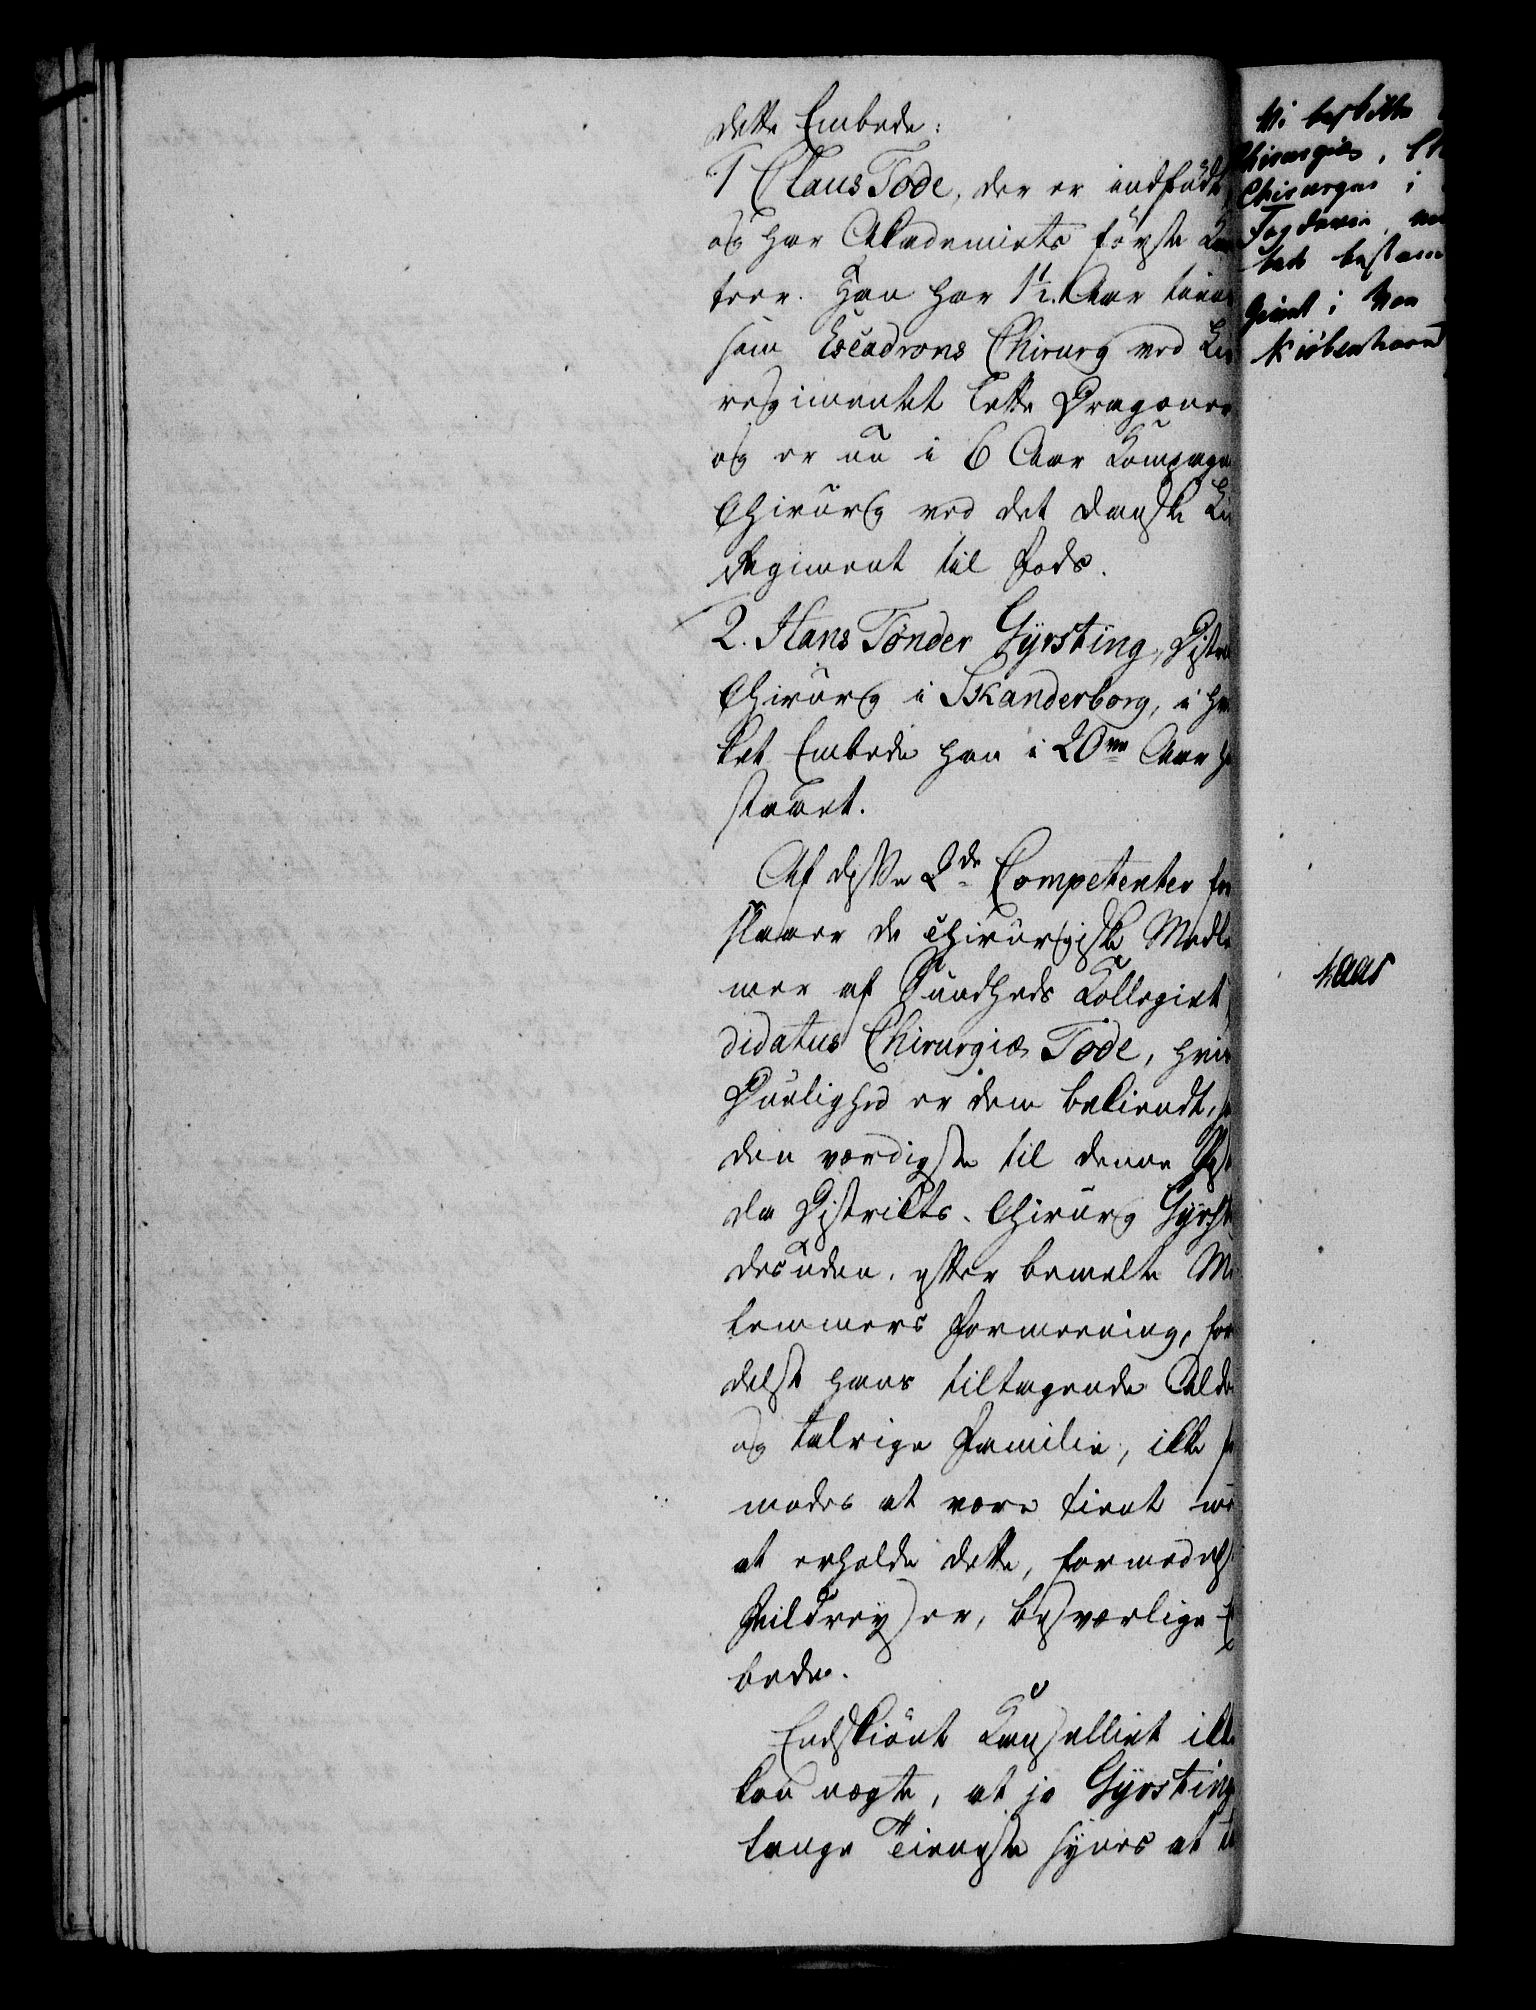 dette Embede:
1 Claus Tode, der er indfødt
og har Academiets første Ka
teer. Han har 1½ Aar tient
som Escadrons Chirurg ved Liv
regimentet lette Dragoner
og er nu i 6 Aar Kompagn
Chirurg ved det danske Liv
Regiment til Fods.
2. Hans Tønder Gyrsting, Distri
Chirurg i Skanderborg, i hvi
ket Embede han i 20ve Aar ha
staaet.
Af disse 2de Competenter fre
slaaer de chirurgiske Medle
mer af Sundheds Kollegiet
didatus Chirurgiæ Tode, hvis
Duelighed er dem bekiendt, so
den værdigste til denne Post
da Districts-Chirurg Gyrst
desuden, efter bemelte Me
lemmers Formeening, for
delst hans tiltagende Alder
og talrige Familie, ikke fo
modes at være tient me
at erholde dette, formedelst
Fieldreyser, besværlige E
bede.
Endskiønt Kanselliet ikke
kan nægte, at jo Gyrsting
lange Tieneste synes at
Vi beskikke
Chirurgiæ, Cl
Chirurgus i
Fogderie
bets bestem
Givet i Vor
Kiøbenhavn
Kaas